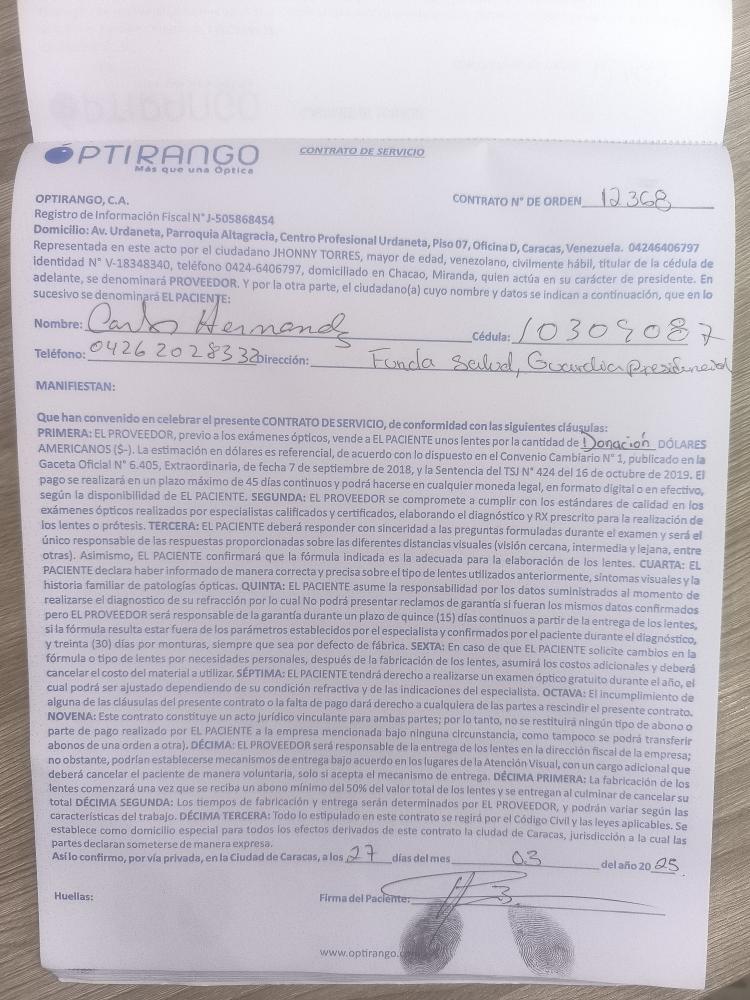 OPTIRANGO
Más que una Óptica
CONTRATO DE SERVICIO
OPTIRANGO, C.A.
CONTRATO N° DE ORDEN 12368
Registro de Información Fiscal N° J-505868454
Domicilio: Av. Urdaneta, Parroquia Altagracia, Centro Profesional Urdaneta, Piso 07, Oficina D, Caracas, Venezuela. 04246406797
Representada en este acto por el ciudadano JHONNY TORRES, mayor de edad, venezolano, civilmente hábil, titular de la cédula de
identidad N° V-18348340, teléfono 0424-6406797, domiciliado en Chacao, Miranda, quien actúa en su carácter de presidente. En
adelante, se denominará PROVEEDOR. Y por la otra parte, el ciudadano(a) cuyo nombre y datos se indican a continuación, que en lo
sucesivo se denominará EL PACIENTE:
Nombre: Carlos Hernandez Cédula: 10309087
Teléfono: 0426 2028332 Dirección: Funda Salud, Guardia presidencial
MANIFIESTAN:
Que han convenido en celebrar el presente CONTRATO DE SERVICIO, de conformidad con las siguientes cláusulas:
PRIMERA: EL PROVEEDOR, previo a los exámenes ópticos, vende a EL PACIENTE unos lentes por la cantidad de Donación DÓLARES
AMERICANOS ($-). La estimación en dólares es referencial, de acuerdo con lo dispuesto en el Convenio Cambiario N° 1, publicado en la
Gaceta Oficial N° 6.405, Extraordinaria, de fecha 7 de septiembre de 2018, y la Sentencia del TSJ N° 424 del 16 de octubre de 2019. El
pago se realizará en un plazo máximo de 45 días continuos y podrá hacerse en cualquier moneda legal, en formato digital o en efectivo,
según la disponibilidad de EL PACIENTE. SEGUNDA: EL PROVEEDOR se compromete a cumplir con los estándares de calidad en los
exámenes ópticos realizados por especialistas calificados y certificados, elaborando el diagnóstico y RX prescrito para la realización de
los lentes o prótesis. TERCERA: EL PACIENTE deberá responder con sinceridad a las preguntas formuladas durante el examen y será el
único responsable de las respuestas proporcionadas sobre las diferentes distancias visuales (visión cercana, intermedia y lejana, entre
otras). Asimismo, EL PACIENTE confirmará que la fórmula indicada es la adecuada para la elaboración de los lentes. CUARTA: EL
PACIENTE declara haber informado de manera correcta y precisa sobre el tipo de lentes utilizados anteriormente, síntomas visuales y la
historia familiar de patologías ópticas. QUINTA: EL PACIENTE asume la responsabilidad por los datos suministrados al momento de
realizarse el diagnostico de su refracción por lo cual No podrá presentar reclamos de garantía si fueran los mismos datos confirmados
pero EL PROVEEDOR será responsable de la garantía durante un plazo de quince (15) días continuos a partir de la entrega de los lentes,
si la fórmula resulta estar fuera de los parámetros establecidos por el especialista y confirmados por el paciente durante el diagnóstico,
y treinta (30) días por monturas, siempre que sea por defecto de fábrica. SEXTA: En caso de que EL PACIENTE solicite cambios en la
fórmula o tipo de lentes por necesidades personales, después de la fabricación de los lentes, asumirá los costos adicionales y deberá
cancelar el costo del material a utilizar. SÉPTIMA: EL PACIENTE tendrá derecho a realizarse un examen óptico gratuito durante el año, el
cual podrá ser ajustado dependiendo de su condición refractiva y de las indicaciones del especialista. OCTAVA: El incumplimiento de
alguna de las cláusulas del presente contrato o la falta de pago dará derecho a cualquiera de las partes a rescindir el presente contrato.
NOVENA: Este contrato constituye un acto jurídico vinculante para ambas partes; por lo tanto, no se restituirá ningún tipo de abono o
parte de pago realizado por EL PACIENTE a la empresa mencionada bajo ninguna circunstancia, como tampoco se podrá transferir
abonos de una orden a otra). DÉCIMA: EL PROVEEDOR será responsable de la entrega de los lentes en la dirección fiscal de la empresa;
no obstante, podrían establecerse mecanismos de entrega bajo acuerdo en los lugares de la Atención Visual, con un cargo adicional que
deberá cancelar el paciente de manera voluntaria, solo si acepta el mecanismo de entrega. DÉCIMA PRIMERA: La fabricación de los
lentes comenzará una vez que se reciba un abono mínimo del 50% del valor total de los lentes y se entregan al culminar de cancelar su
total DÉCIMA SEGUNDA: Los tiempos de fabricación y entrega serán determinados por EL PROVEEDOR, y podrán variar según las
características del trabajo. DÉCIMA TERCERA: Todo lo estipulado en este contrato se regirá por el Código Civil y las leyes aplicables. Se
establece como domicilio especial para todos los efectos derivados de este contrato la ciudad de Caracas, jurisdicción a la cual las
partes declaran someterse de manera expresa.
Así lo confirmo, por vía privada, en la Ciudad de Caracas, a los 27 días del mes 03 del año 2025.
Huellas:
Firma del Paciente:
www.optirango.